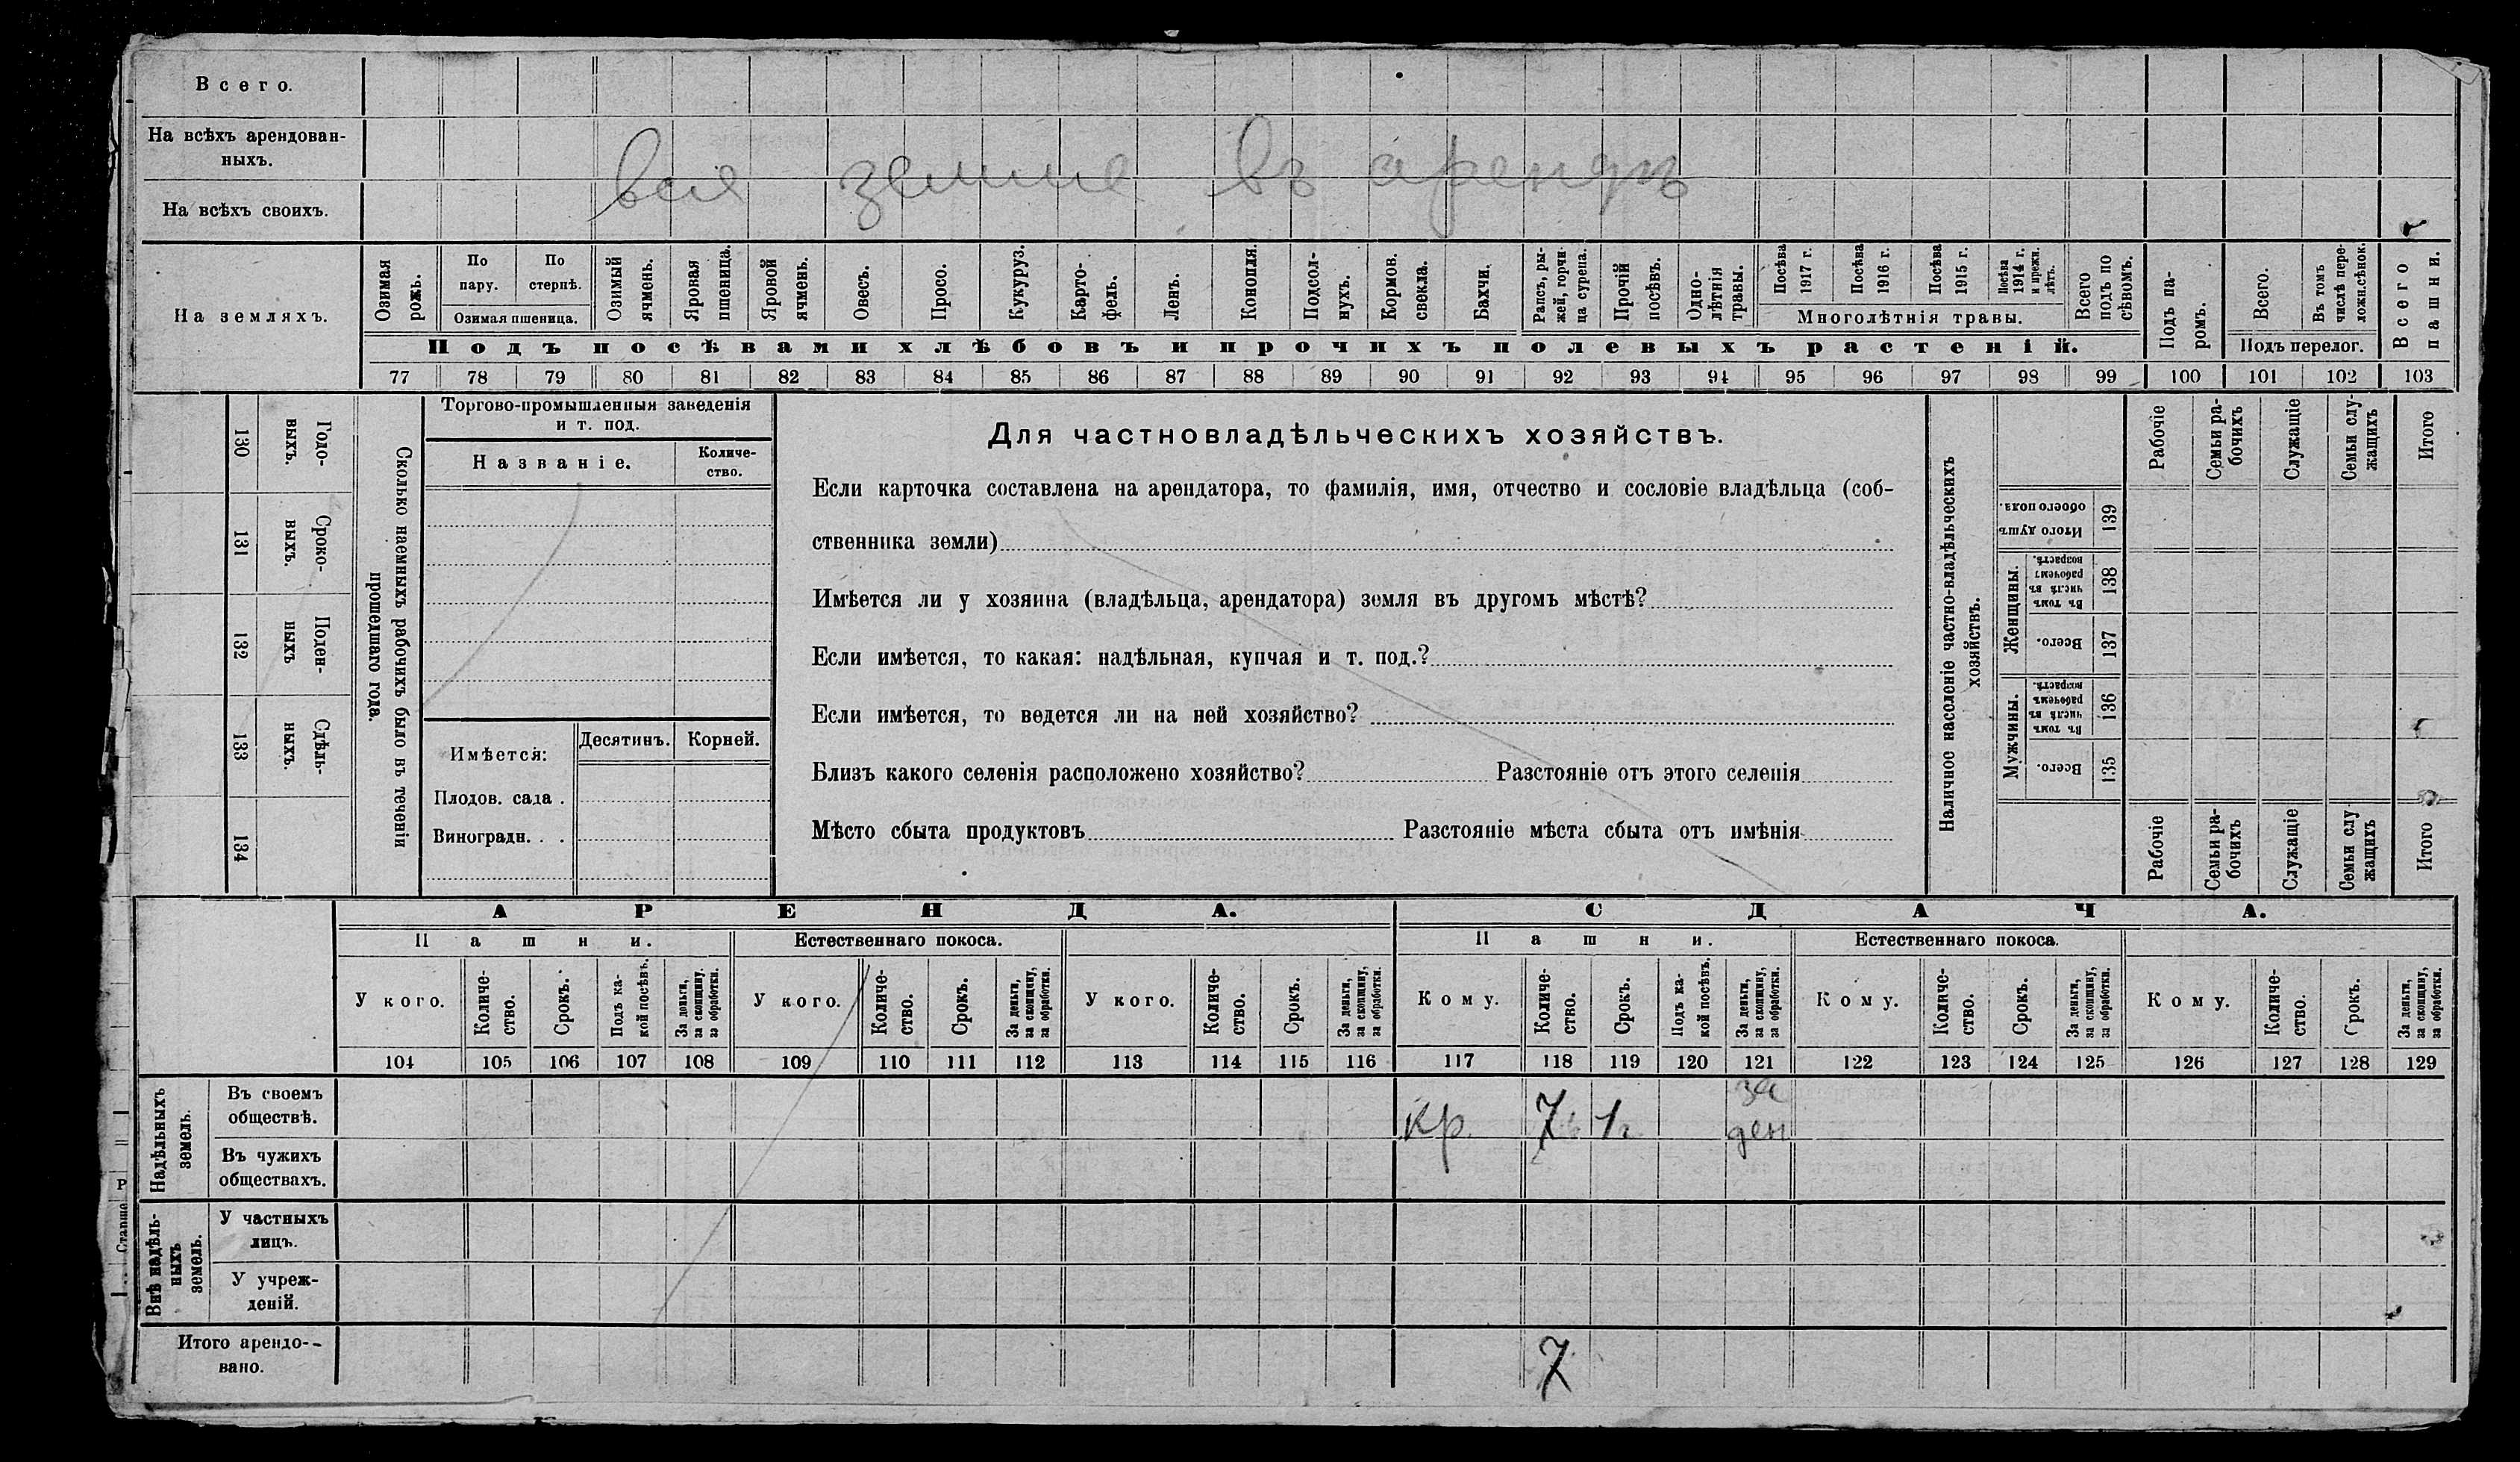 Всего.
На всѣхъ арендован-
ныхъ.
вся земля въ арендѣ
На всѣхъ своихъ.
На земляхъ.
Озимая рожь.
По пару.
По стернѣ.
Озимая пшеница.
Озимый ячмень.
Яровая пшеница.
Яровой ячмень.
Овесъ.
Просо.
Кукуруз.
Карто-
фель.
Ленъ.
Конопля.
Подсол-
нухъ.
Кормов. свекла.
Бахчи.
Рапсъ, ры-
жей, горчи-
ца сурепа.
Прочій посѣвъ.
Одно-
лѣтнія травы.
Посѣва 1917 г.
Посѣва 1916 г.
Посѣва 1915 г.
Посѣва 1914 г. и прежн. лѣтъ.
Многолѣтнія травы.
Всего подъ по
сѣвомъ.
Подъ па-
ромъ.
Всего.
Въ томъ числѣ пере-
ложн.сѣнок.
Подъ перелог.
Всего пашни.
Подъ посѣвами хлѣбовъ и прочихъ полевыхъ растеній.
77 78 79 80 81 82 83 84 85 86 87 88 89 90 91 92 93 94 95 96 97 98 99 100 101 102 103
130 Годо-
выхъ.
131 Сроко-
выхъ.
132 Поден-
ныхъ
133 Сдѣль-
ныхъ.
134
Сколько наемныхъ рабочихъ было въ теченіи
прошедшаго года.
Торгово-промышленныя заведенія
и т. под.
Названіе.
Количе-
ство.
Имѣется:
Десятинъ.
Корней.
Плодов. сада .
Виноградн. . .
Для частновладѣльческихъ хозяйствъ.
Если карточка составлена на арендатора, то фамилія, имя, отчество и сословіе владѣльца (соб-
ственника земли)
Имѣется ли у хозяина (владѣльца, арендатора) земля въ другомъ мѣстѣ?
Если имѣется, то какая: надѣльная, купчая и т. под.?
Если имѣется, то ведется ли на ней хозяйство?
Близъ какого селенія расположено хозяйство? Разстояніе отъ этого селенія
Мѣсто сбыта продуктовъ Разстояніе мѣста сбыта отъ имѣнія
Наличное населеніе частно-владѣльческихъ
хозяйствъ.
Рабочіе
Семьи ра-
бочихъ
Служащіе
Семьи слу-
жащихъ
Итого
Итого душъ обоего пола.
139
Женщины.
Въ томъ числѣ въ рабочемъ возрастѣ.
138
Всего.
137
Мужчины.
Въ томъ числѣ въ рабочемъ возрастѣ.
136
Всего.
135
Рабочіе
Семьи ра-
бочихъ
Служащіе
Семьи слу
жащихъ
Итого
АРЕНДА.
СДАЧА.
Пашни.
Естественнаго покоса.
Пашни.
Естественнаго покоса.
У кого.
Количе-
ство.
Срокъ.
Подъ ка-
кой посѣвъ.
За деньги, за скопщину, за обработки.
У кого.
Количе-
ство.
Срокъ.
За деньги, за скопщину, за обработки.
У кого.
Количе-
ство.
Срокъ.
За деньги, за скопщину, за обработки.
Кому.
Количе-
ство.
Срокъ.
Подъ ка-
кой посѣвъ.
За деньги, за скопщину, за обработки.
Кому.
Количе-
ство.
Срокъ.
За деньги, за скопщину, за обработки.
Кому.
Количе-
ство.
Срокъ.
За деньги, за скопщину, за обработки.
104 105 106 107 108 109 110 111 112 113 114 115 116 117 118 119 120 121 122 123 124 125 126 127 128 129
Надѣльныхъ
земель.
Въ своемъ
обществѣ.
кр. 7 1г за
ден
Въ чужихъ
обществахъ.
Внѣ надѣль-
ныхъ
земель.
У частныхъ
лицъ.
У учреж-
деній.
Итого арендо-
вано.
7
Р
Старше